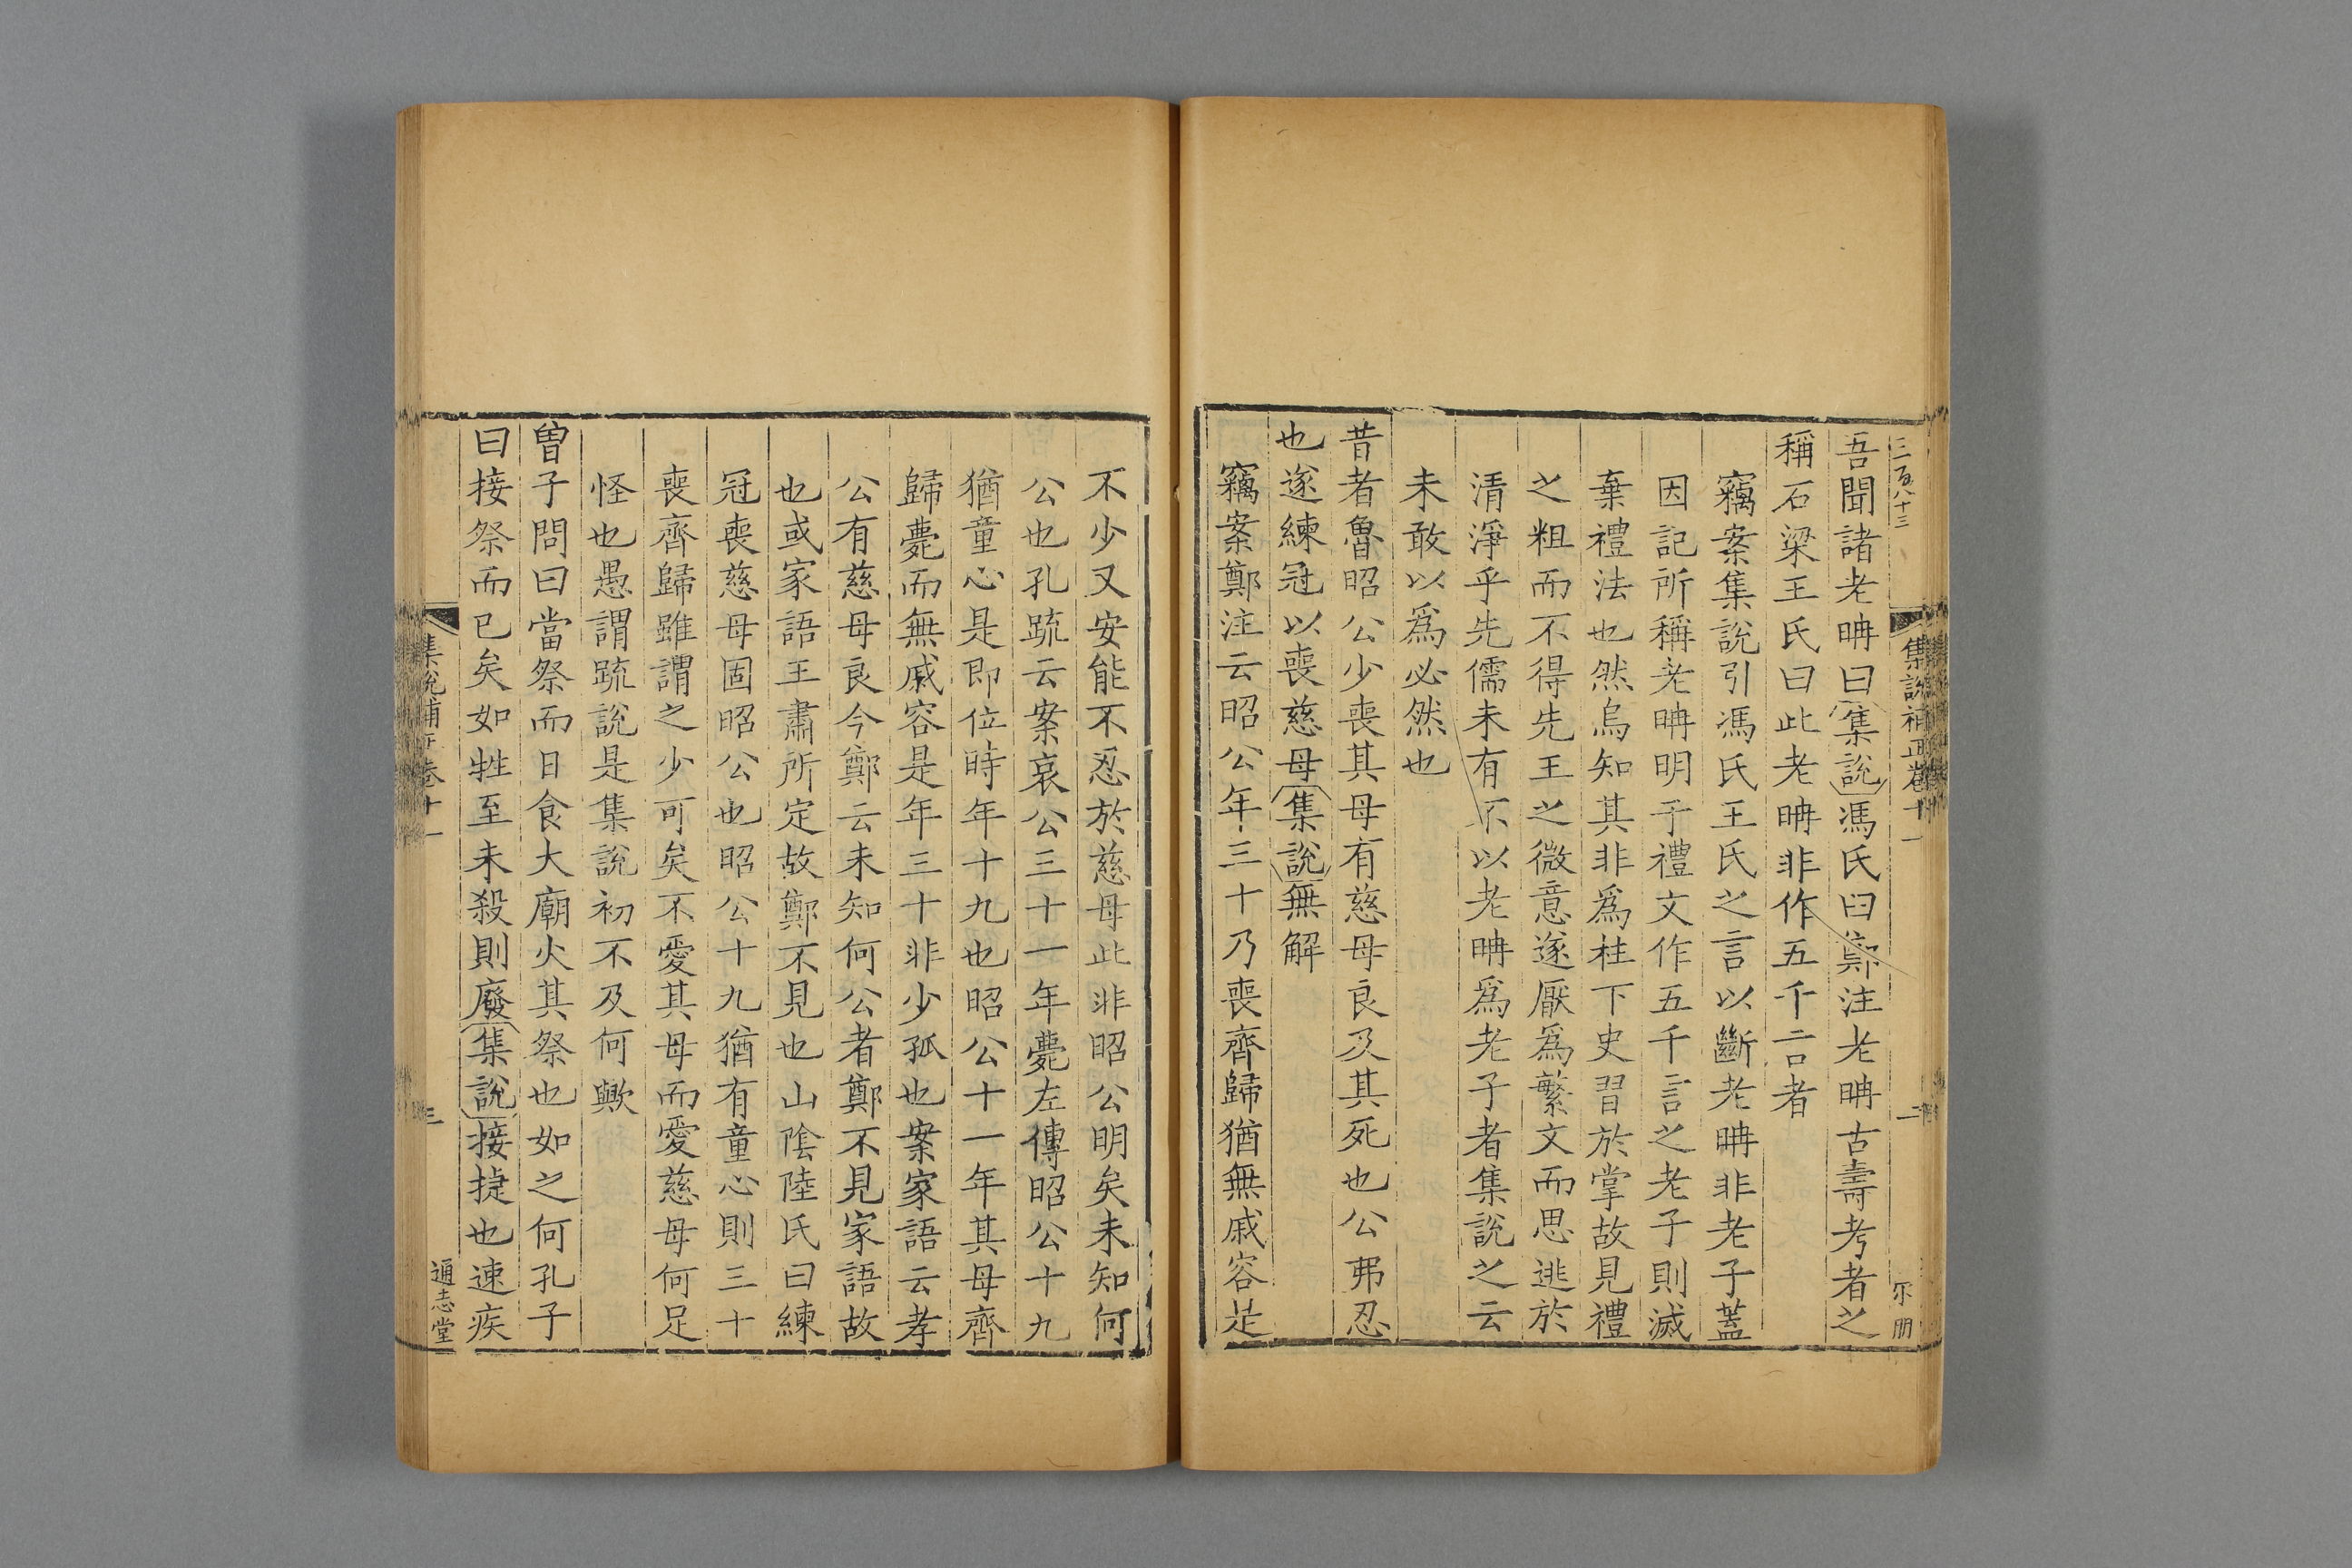 三百八十三
集說補正卷十一
二
吾聞諸老聃曰集說馮氏曰鄭注老聃古壽考者之
稱石梁王氏曰此老聃非作五千言者
竊案集說引馮氏王氏之言以斷老聃非老子蓋
因記所稱老聃明于禮文作五千言之老子則滅
棄禮法也然烏知其非爲柱下史習於掌故見禮
之粗而不得先王之微意遂厭爲繁文而思逃於
清淨乎先儒未有不以老聃爲老子者集說之云
未敢以爲必然也
昔者魯昭公少喪其母有慈母良及其死也公弗忍
也遂練冠以喪慈母集說無解
竊案鄭注云昭公年三十乃喪齊歸猶無戚容是
不少又安能不忍於慈母此非昭公明矣未知何
公也孔疏云案哀公三十一年薨左傳昭公十九
猶童心是即位時年十九也昭公十一年其母齊
歸薨而無戚容是年三十非少孤也案家語云孝
公有慈母良今鄭云未知何公者鄭不見家語故
也或家語王肅所定故鄭不見也山陰陸氏曰練
冠喪慈母固昭公也昭公十九猶有童心則三十
喪齊歸雖謂之少可矣不愛其母而愛慈母何足
怪也愚謂疏說是集說初不及何歟
曾子問曰當祭而日食大廟火其祭也如之何孔子
曰接祭而已矣如牲至未殺則廢集說接捷也速疾
集說補正卷十一
三
通志堂